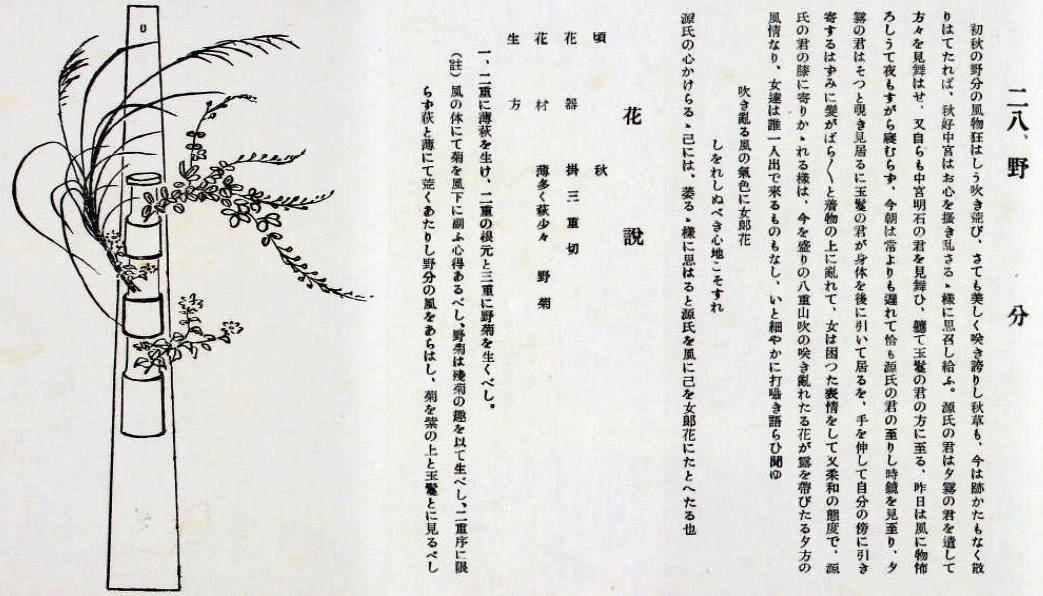 二八、野分
初秋の野分の風物狂はしう吹き荒び、さても美しく咲き誇りし秋草も、今は跡かたもなく散
りはてたれば、秋好中宮はお心を掻き乱さるゝ様に思召し給ふ。源氏の君は夕霧の君を遣して
方々を見舞はせ、又自らも中宮明石の君を見舞ひ、軈て玉鬘の君の方に至る、昨日は風に物怖
ろしうて夜もすがら寝むらず、今朝は常よりも遅れて恰も源氏の君の至りし時鏡を見至り、夕
霧の君はそつと覗き見居るに玉鬘の君が身体を後に引いて居るを、手を伸して自分の傍に引き
寄するはずみに髪がばら〳〵と着物の上に亂れて、女は困つた表情をして又柔和の態度で、源
氏の君の膝に寄りかゝれる様は、今を盛りの八重山吹の咲き亂れたる花が露を帶びたる夕方の
風情なり、女達は誰一人出で來るものもなし、いと細やかに打囁き語らひ聞ゆ
吹き亂る風の氣色に女郎花
しをれしぬべき心地こそすれ
源氏の心かけらるゝ己には、萎るゝ樣に思はると源氏を風に己を女郎花にたとへたる也
花說
頃 秋
花器 掛三重切
花材 薄多く萩少々 野菊
生方
一、二重に薄萩を生け、二重の根元と三重に野菊を生くべし。
(註)風の体にて菊を風下に副ふ心得あるべし、野菊は殘菊の趣を以て生べし、二重序に限
らず萩と薄にて荒くあたりし野分の風をあらはし、菊を紫の上と玉鬘とに見るべし